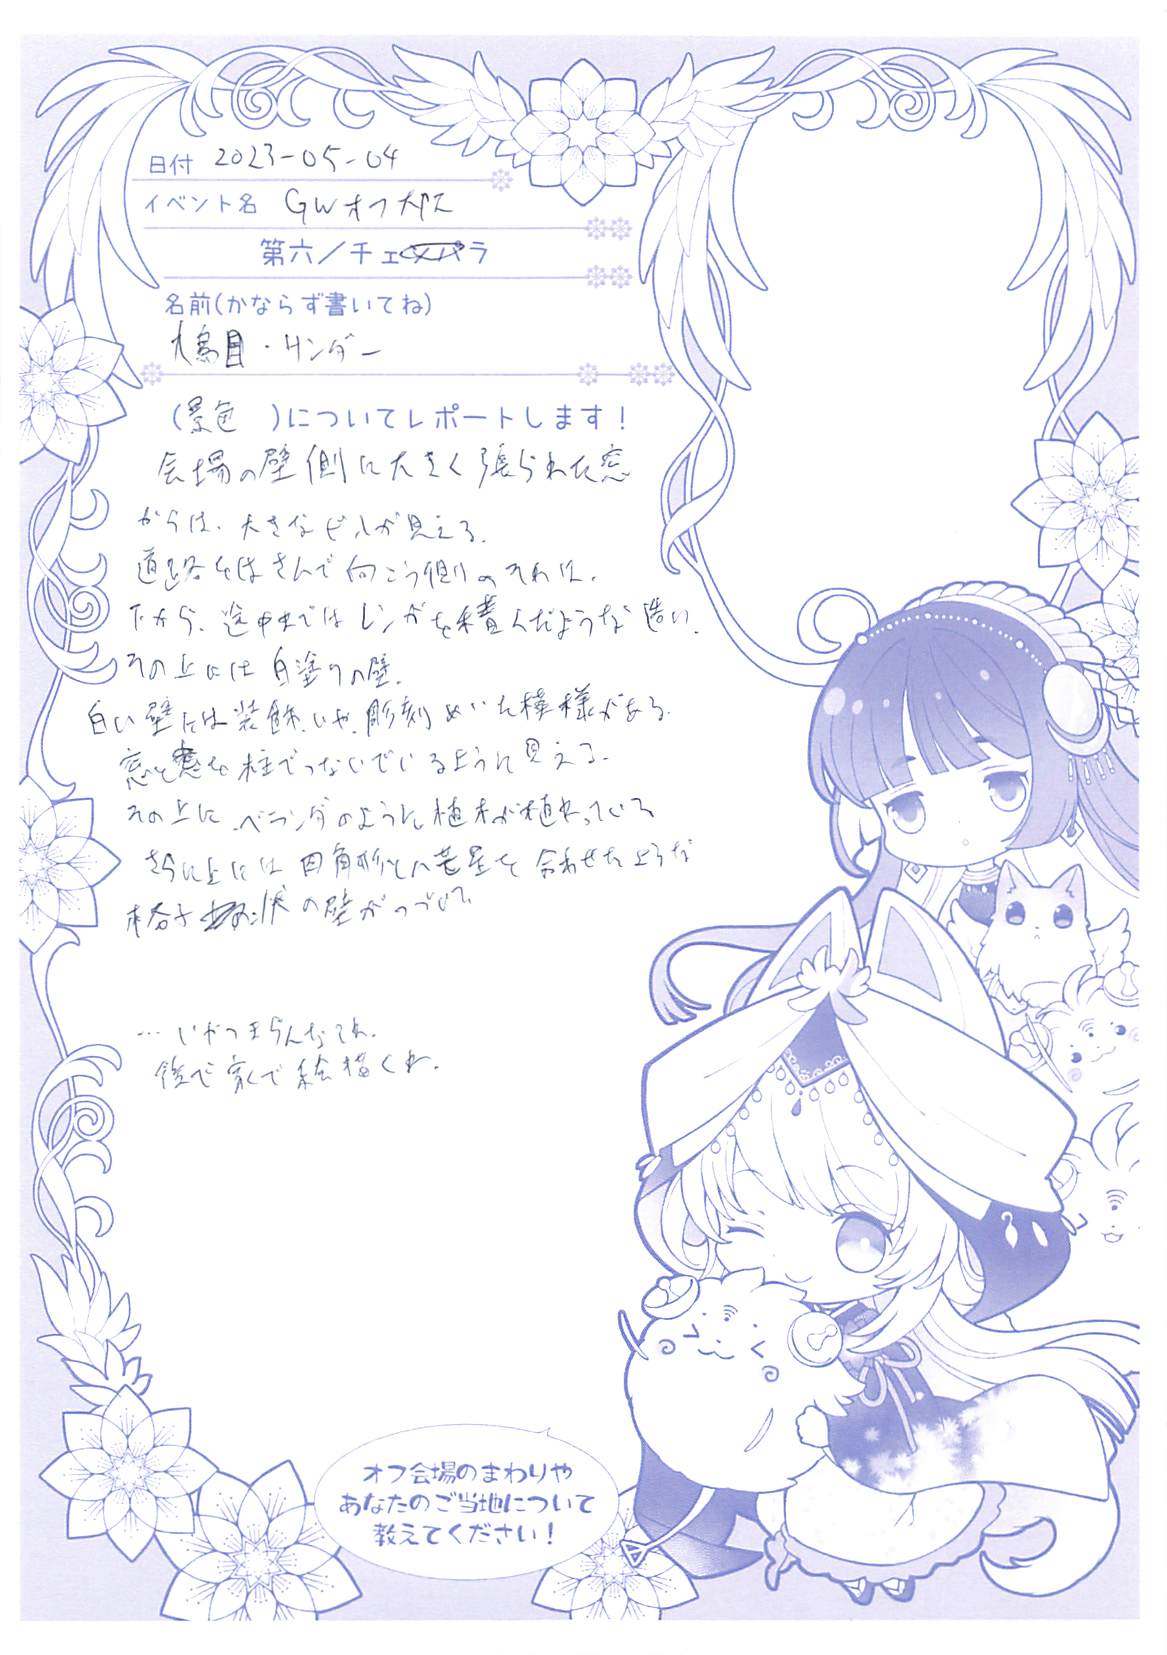 日付 2023-05-04
イベント名 GWオフ
第六／チェンバラ
名前(かならず書いてね)
目・サンダー
(景色 )についてレポートします！
会場の壁側に大きく張られた窓
からは、大きなビルが見える。
道路をはさんで向こう側のそれは、
下から、途中まではレンガを積んだような造り、
その上には白塗りの壁。
白い壁には装飾、いや、彫刻めいた模様がある。
窓と窓を柱でつないでいるように見える。
その上に、ベランダのように植木が植わっている
さらに上には四角形と八芒星を合わせたような
格子状の壁がつづいて
…いかつまらんなこれ。
後で家で絵描くわ。
オフ会場のまわりや
あなたのご当地について
教えてください！